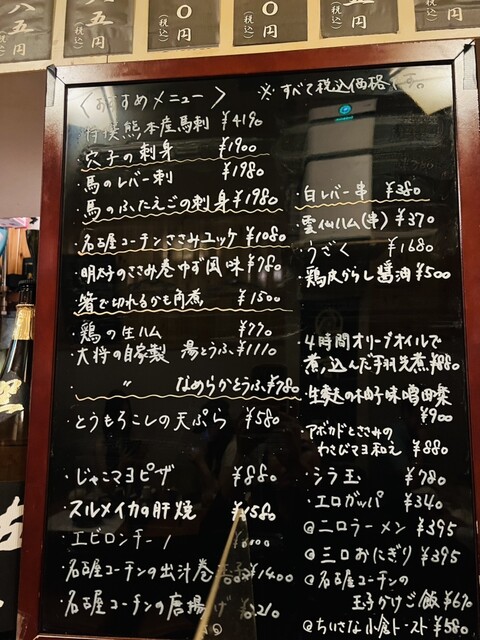 八五円
(税込)
五円
(税込)
〇円
(税込)
〇円
(税込)
五円
(税込)
円
(税込)
<おすすめメニュー>
※すべて税込価格です。
・特撰熊本産馬刺 ¥4190
・穴子の刺身 ¥1900
・馬のレバー刺 ¥1980
・馬のふたえごの刺身 ¥1980
・名古屋コーチンささみユッケ ¥1080
・明太子のささみ巻ゆず風味 ¥780
・箸で切れるかも角煮 ¥1500
・鶏の生ハム ¥770
・大将の自家製 湯とうふ ¥1110
・ 〃 なめらかとうふ ¥780
・とうもろこしの天ぷら ¥580
・じゃこマヨピザ ¥880
・スルメイカの肝焼 ¥1580
・エビロンチー
・名古屋コーチンの出汁巻玉子 ¥1400
・名古屋コーチンの唐揚げ
・白レバー串 ¥380
・雲仙ハム(串) ¥370
・うざく ¥1680
・鶏皮からし醤油 ¥500
・4時間オリーブオイルで
煮込んだ手羽先煮 ¥880
・生麩の柚子味噌田楽
¥900
・アボカドとささみの
わさびマヨ和え ¥880
・シラ玉 ¥780
・エロガッパ ¥340
@二口ラーメン ¥395
@三口おにぎり ¥395
@名古屋コーチンの
玉子かけご飯 ¥670
@ちいさな小倉トースト ¥580